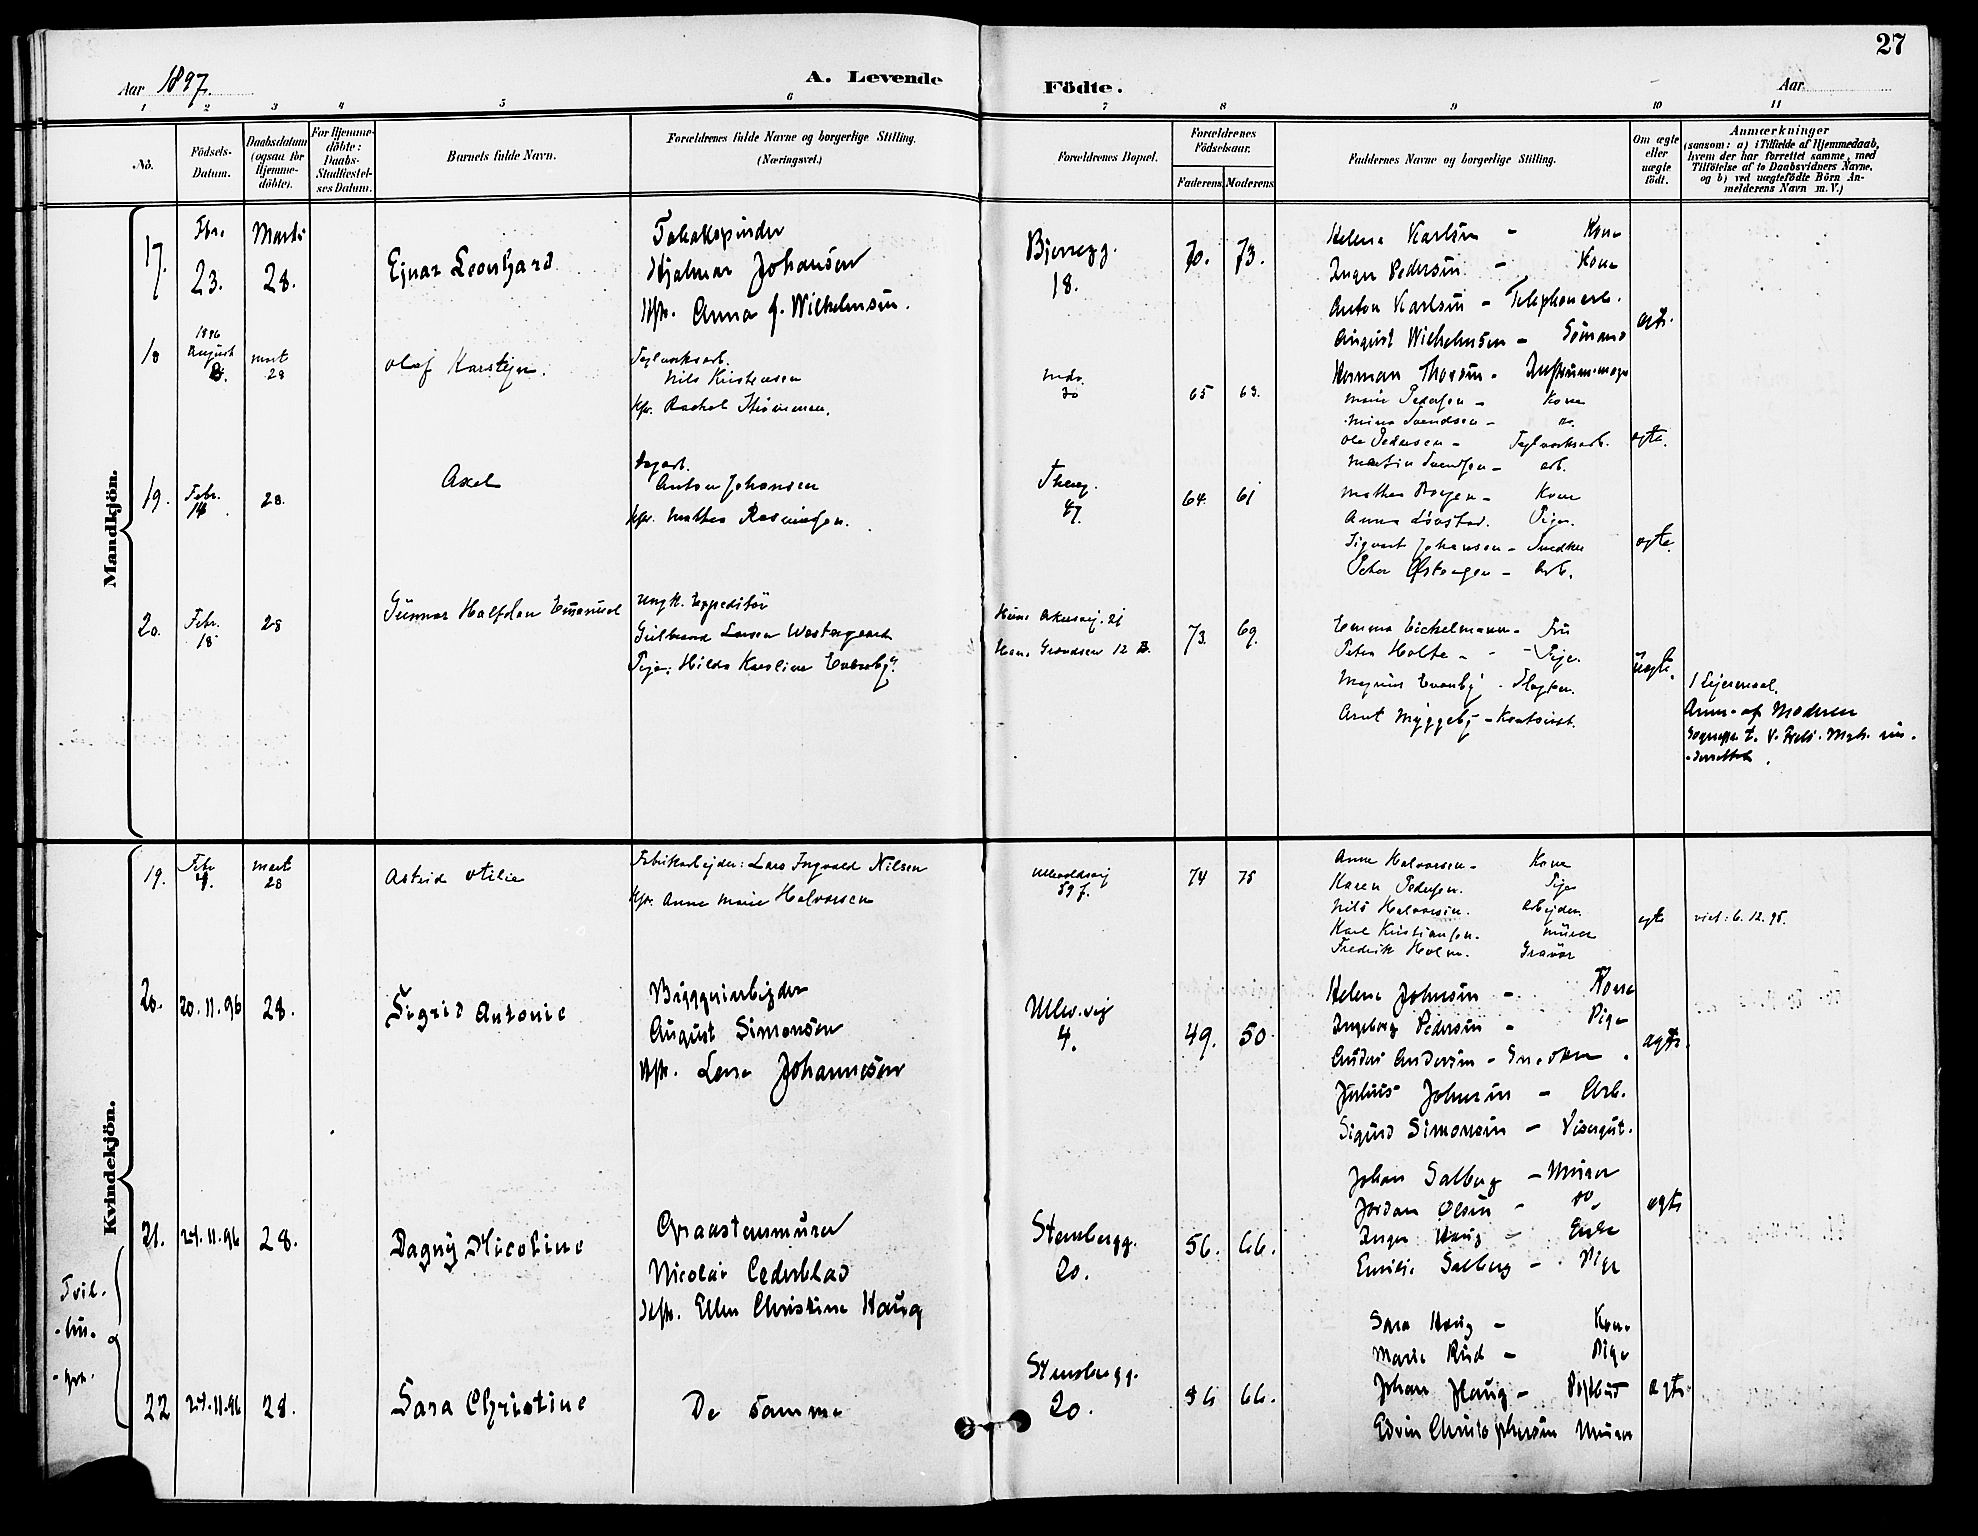 27
Aar 1897.
A. Levende Födte.
Aar
1 2 3 4 5 6 7 8 9 10 11
No.
Födsels-Datum.
Daabsdatum (ogsaa for Hjemme-döbte).
For Hjemme-döbte: Daabs-Stadfæstel-ses Datum.
Barnets fulde Navn.
Forældrenes fulde Navne og borgerlige Stilling. (Næringsvei.)
Forældrenes Bopæl.
Forældrenes Födselsaar.
Faderens. Moderens.
Faddernes Navne og borgerlige Stilling.
Om ægte eller uægte födt.
Anmærkninger
(saasom: a) i Tilfælde af Hjemmedaab, hvem der har forrettet samme, med Tilföielse af to Daabsvidners Navne, og b) ved uægtefödte Börn An-melderens Navn m. V.)
Mandkjön.
17.
Fbr.
23.
Marts
28.
Ejnar Leonhard
Hjalmar Johansen
Hfr. Anna J. Wilhelmsen.
18.
70. 73.
Helene Karlsen - Kone
Inger Pedersen - Kone
Anton Karlsen - Telephonarb.
August Wilhelmsen - Sömand
ægte.
18
1896
August
mart
28
Olaf Karstejn.
Teglverksarb.
Nils Kristensen
65 63.
Marie Pedersen - Kone
Mina Svendsen - do.
Ole Pedersen - Teglverksarb.
Martin Svendsen - arb.
ægte.
19.
Febr.
14.
28.
Axel
Anton Johansen
47.
64. 61
Kone
Pige.
Sigvart Johansen - Snedker
ægte.
20.
Febr.
18
28
Gunnar Halfdan Emanuel
Ungk. Expeditör
Gulbrand Larsen Westergaard
Pige. Hilda Karoline
73. 69.
Emma Eickelmann - Fru
Petra Holte - Pige.
uægte.
1 Leiermaal.
Anm. af Moderen
Kvindekjön.
19.
Febr
mart
28
Astrid Otilie
Fabrikarbejder: Lars Ingvald Nilsen
Kfr. Anne Marie Halvorsen
Ullevoldsvej
59 f.
74 75
Anne Halvorsen - Kone
Karen Pedersen. Pige
Nils Halvorsen. Arbejder.
Karl Kristiansen. Murer
Fredrik Holm. Gravör
ægte
viet: 6.12.95.
20.
20.11.96
28.
Sigrid Antonie
Bryggeriarbejder
August Simonsen
Hfr. Lene Johannesen
Ullev.vej
4.
49. 50
Helene Johnsen - Kone
Ingeborg Pedersen - Pige
Anders Andersen - Snedker.
Julius Johnsen - Arb.
Sigurd Simonsen - Visergut.
ægte.
21.
27.11.96
28.
Dagny Nicoline
Graastensmurer
Nicolai Cederblad
Hfr. Ellen Christine Haug
Stensbergg.
20.
56. 66.
Johan Salberg - Murer
Jordan Olsen - do.
Inger Haug - Enke
Emilie Salberg - Pige
ægte
Tvil-
-lin-
-ger.
22
27.11.96
28.
Sara Christine
De samme
Stensbergg.
20.
56 66.
Sara Haug - Kone
Marie Rud - Pige
Johan Haug - Postbud
Edvin Christophersen Murer
ægte.